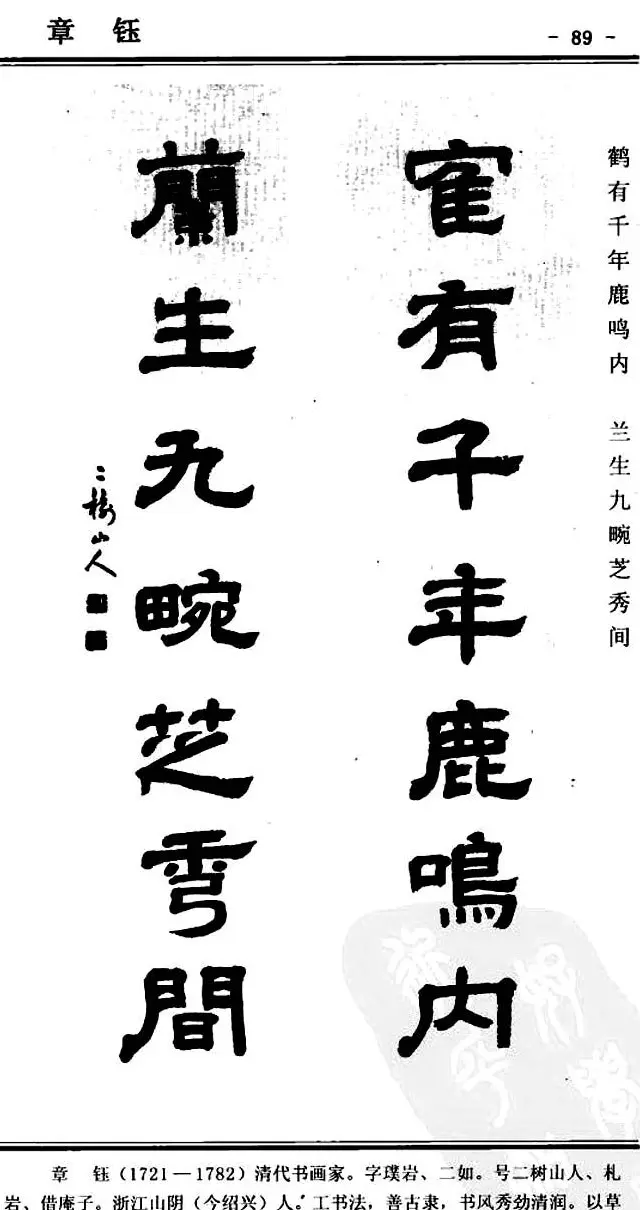 章 钰
- 89 -
鹤有千年鹿鸣内 兰生九畹芝秀间
寉有千年鹿鳴内
蘭生九畹芝秀間
二樹山人
章 钰(1721—1782)清代书画家。字璞岩、二如。号二树山人、札
岩、借庵子。浙江山阴(今绍兴)人。工书法，善古隶，书风秀劲清润。以草